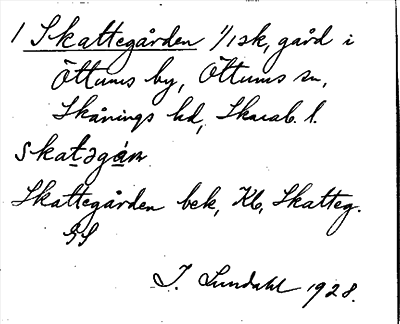 1 Skattegården 1/1 sk, gård i
Öttums by, Öttums sn,
Skånings hd, Skarab. l.
skatəgán
Skattegården bek, Kb, Skatteg.
GS
I. Lundahl 1928.